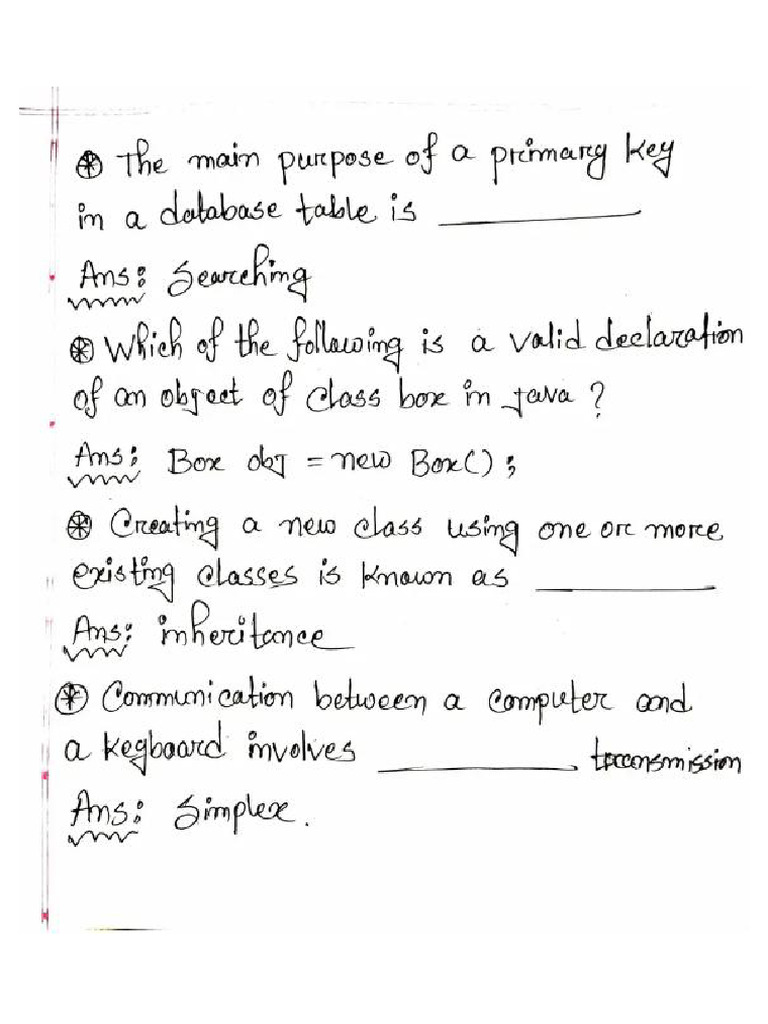 ⊛ The main purpose of a primary key
in a database table is ________
Ans: Searching
⊛ Which of the following is a valid declaration
of an object of class box in java?
Ans: Box obj = new Box();
⊛ Creating a new class using one or more
existing classes is known as ________
Ans: inheritance
⊛ Communication between a computer and
a keyboard involves ________ transmission
Ans: Simplex.